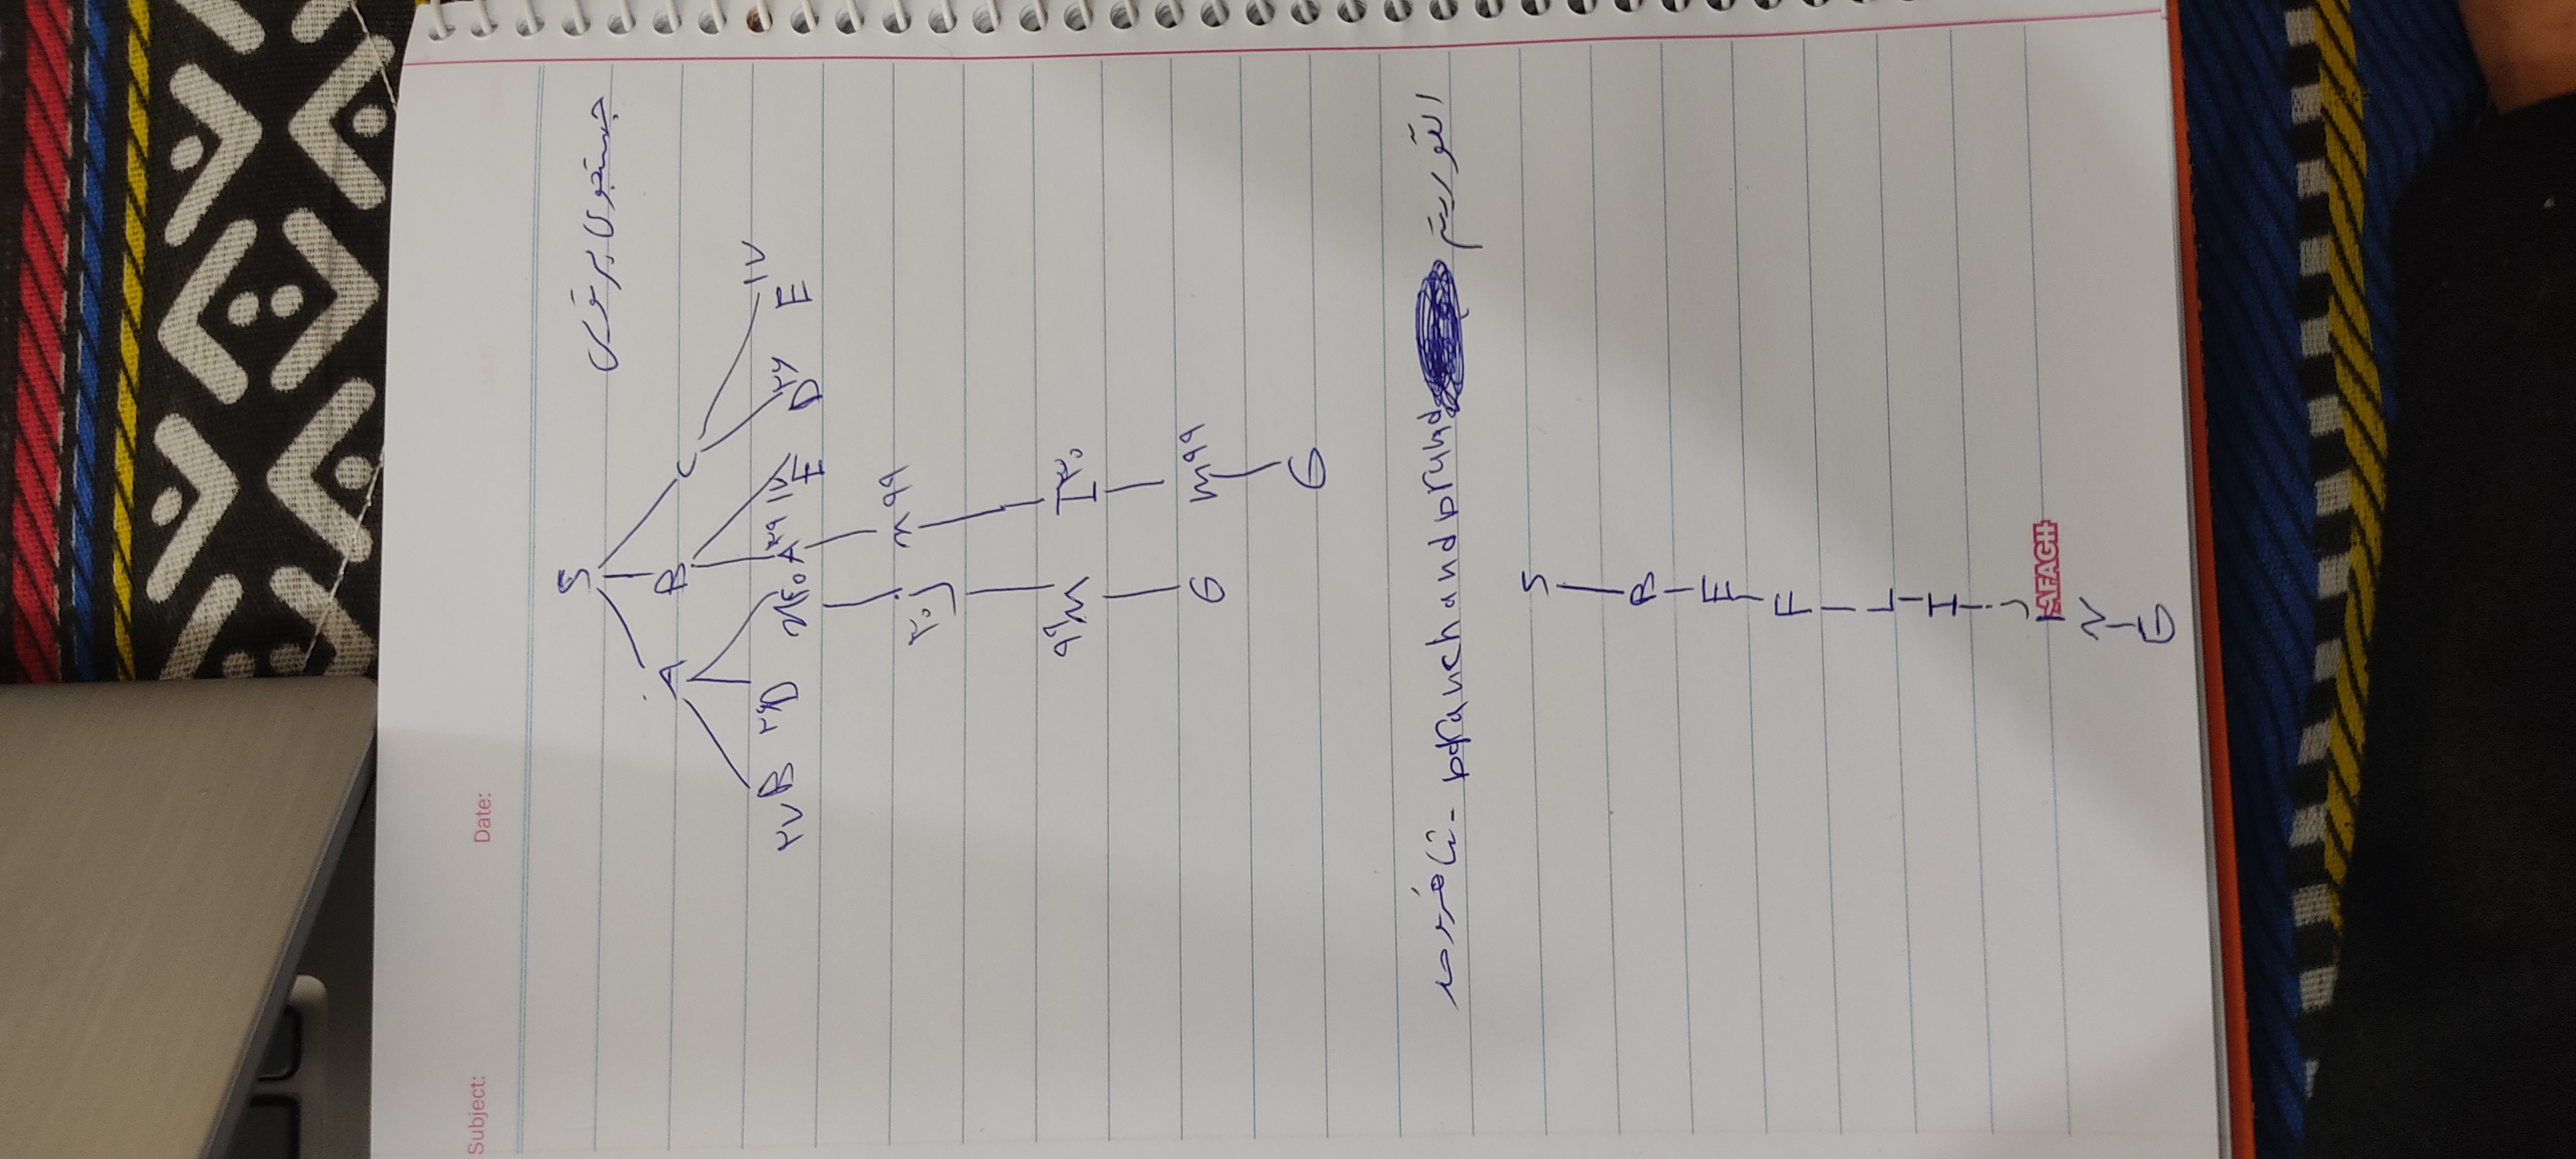 Subject: Date:
جستجوی پرتوی
S
A B C
۲۷ B D n۴۰ A ۲۹ ۱۷ E D ۲۶ E ۱۷
۳۰ J n ۹۹
۹۹ M I ۳۰
G m ۹۹
G
الگوریتم branch and brund - شاخه و حد
S
B
E
F
L
I
J
AFAGH
N
G